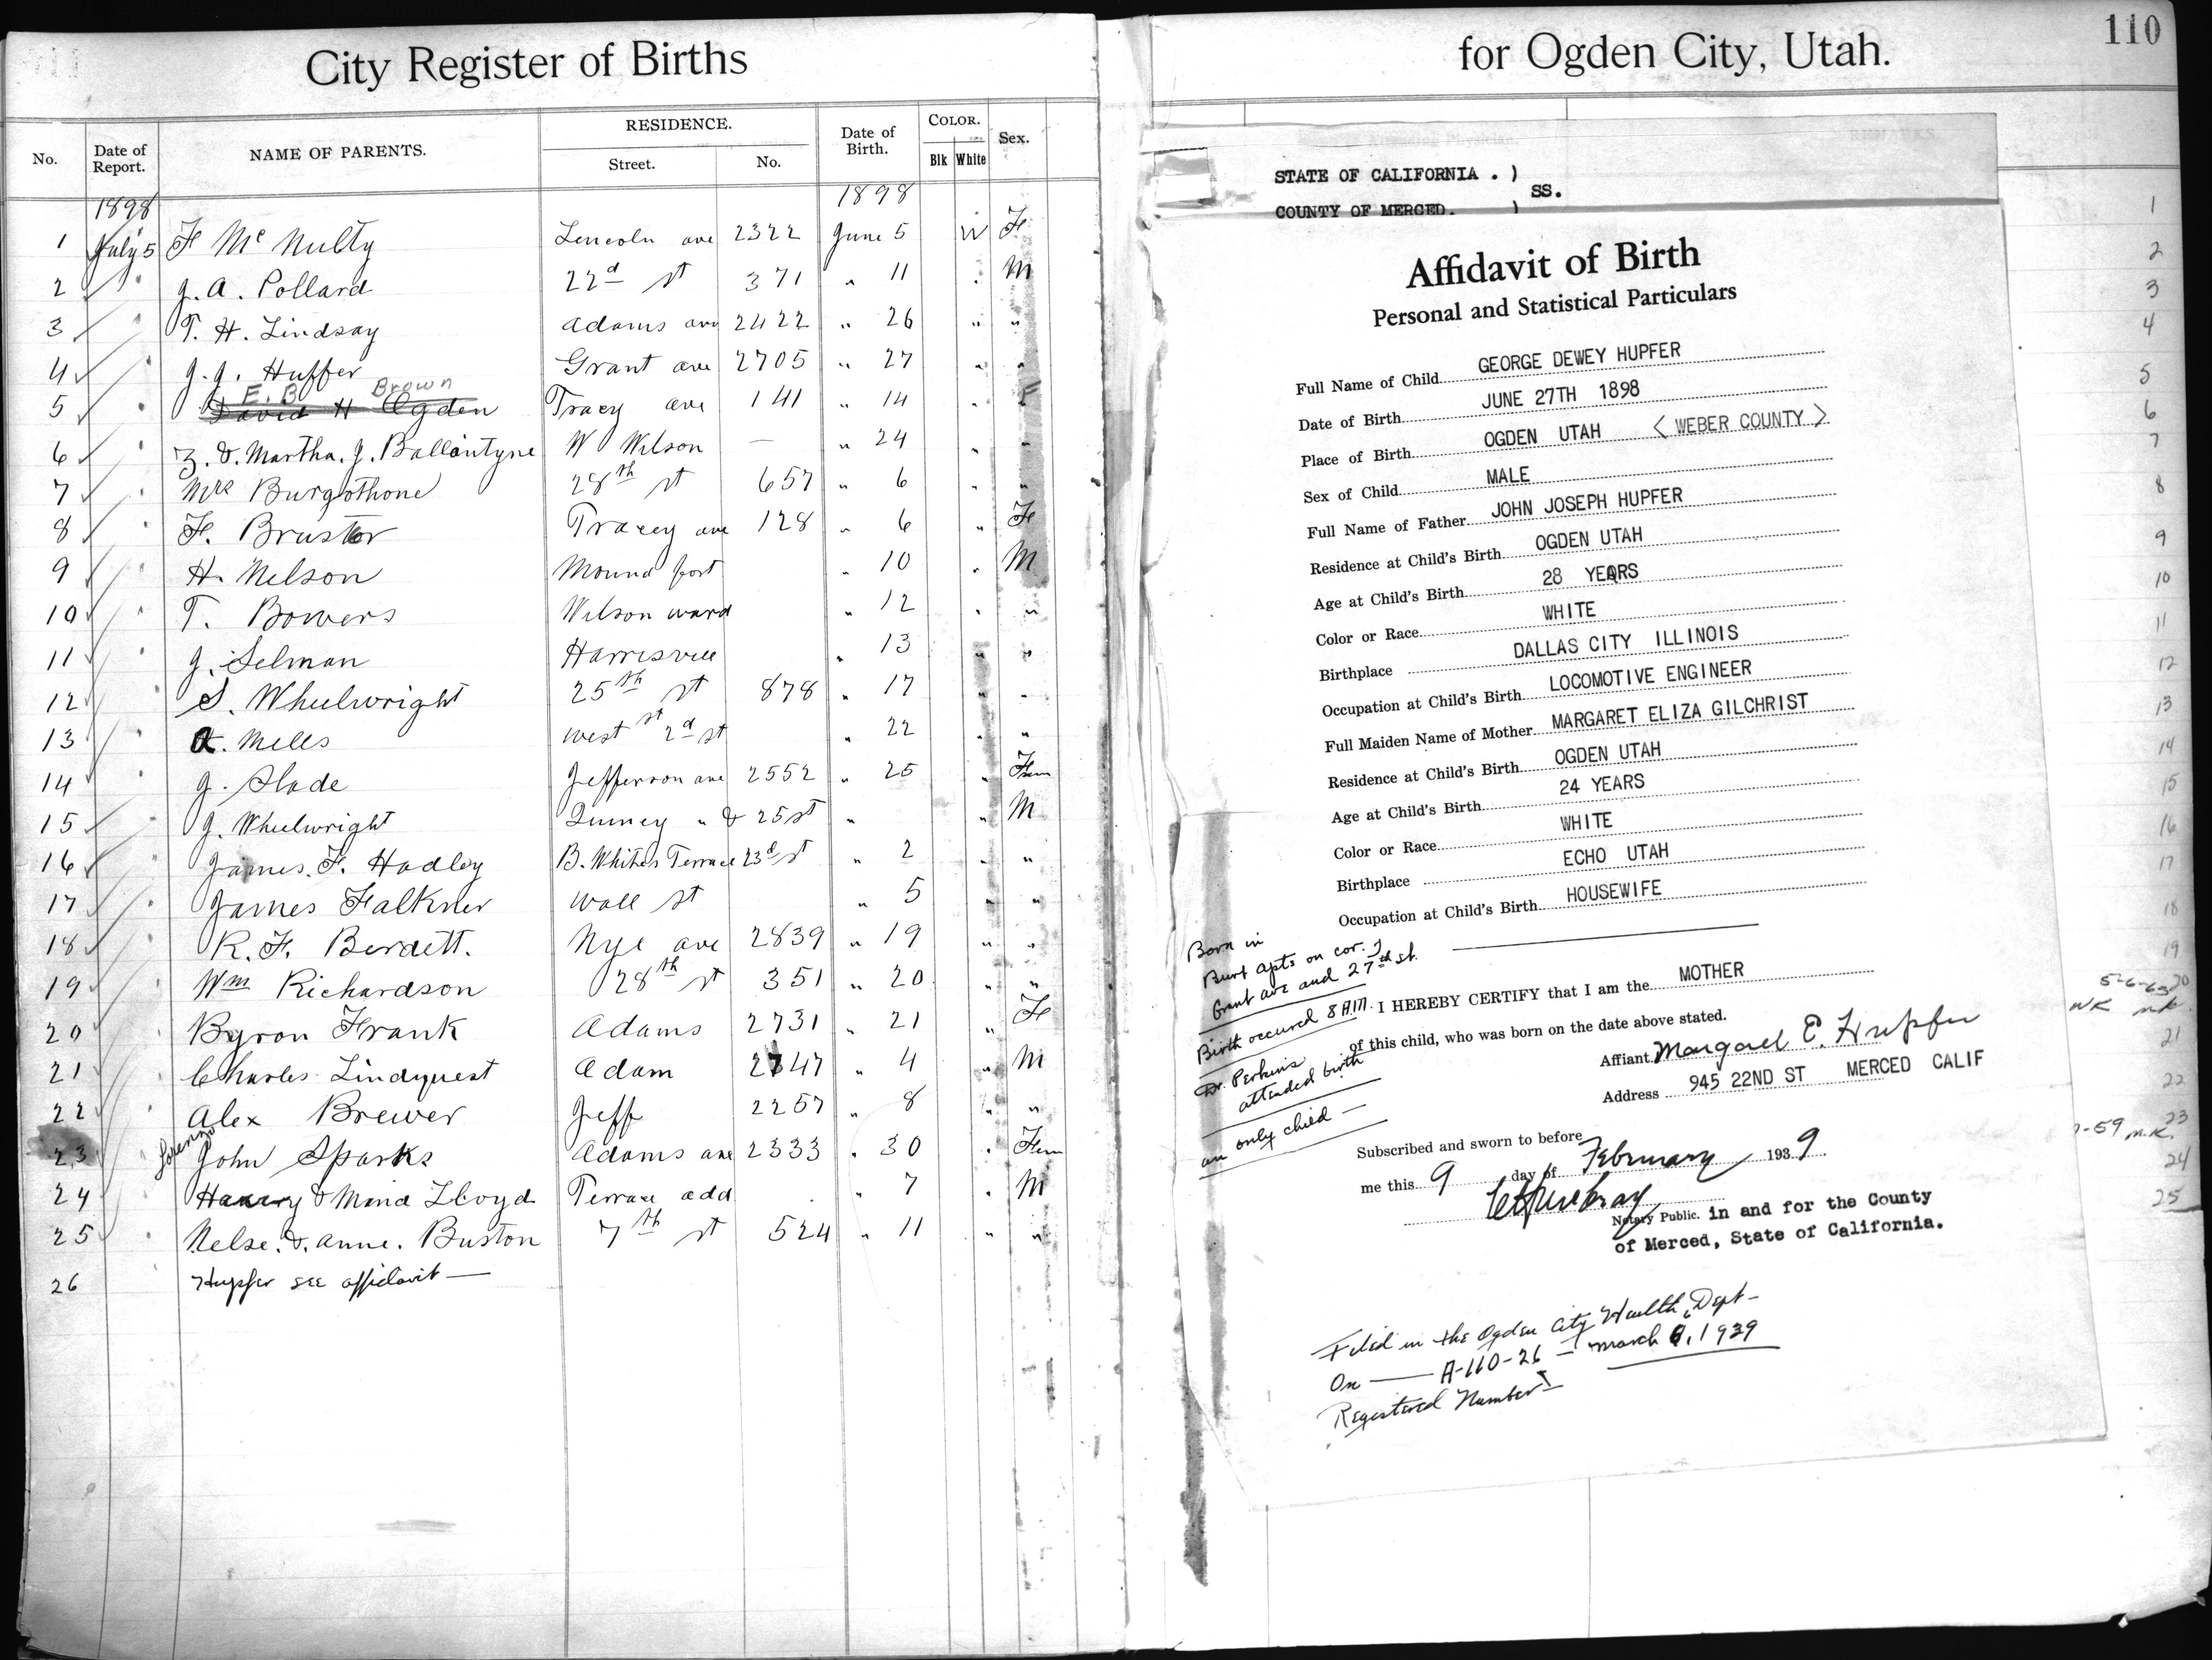 City Register of Births
No. Date of Report. NAME OF PARENTS. RESIDENCE. Street. No. Date of Birth. COLOR. Blk White Sex.
1898 1898
1 July 5 F Mc Nulty Lincoln ave 2322 June 5 W F
2 " J. A. Pollard 22d st 371 " 11 " M
3 " T. H. Lindsay Adams ave 2422 " 26 " "
4 " J. J. Huffer Grant ave 2705 " 27 " "
E. B Brown
5 " David H Ogden Tracy ave 141 " 14 F
6 Z. & Martha. J. Ballantyne W Wilson — " 24 " "
7 " Mrs Burgothone 28th st 657 " 6 " "
8 " F. Bruster Tracey ave 128 " 6 " F
9 " H. Nelson Mound fort " 10 " M
10 " T. Bowers Wilson ward " 12 " "
11 " J. Selman Harrisvill " 13 " "
12 " S. Wheelwright 25th st 878 " 17 " "
13 " A. Mills West st 2d st " 22 " "
14 " J. Slade Jefferson ave 2552 " 25 " Fem
15 " J. Wheelwright Quincy " & 25 st " " M
16 " James. F. Hadley B. Whites Terrace 23d st " 2 " "
17 " James Falkner Wall st " 5 " "
18 " R. F. Berdett. Nye ave 2839 " 19 " "
19 " Wm Richardson 28th st 351 " 20 " "
20 " Byron Frank Adams 2731 " 21 " F
21 " Charles Lindquest Adam 2747 " 4 " M
22 " Alex Brewer Jeff 2257 " 8 " "
Lorenzo
23 " John Sparks Adams ave 2333 " 30 " Fem
24 " Harry & Mina Lloyd Terrace add " 7 " M
25 " Nelse. & Anne. Buston 7th st 524 " 11 " "
26 Hupfer see affidavit —
for Ogden City, Utah.
110
REMARKS.
STATE OF CALIFORNIA . )
SS.
COUNTY OF MERCED. )
Affidavit of Birth
Personal and Statistical Particulars
Full Name of Child GEORGE DEWEY HUPFER
Date of Birth JUNE 27TH 1898
Place of Birth OGDEN UTAH < WEBER COUNTY >
Sex of Child MALE
Full Name of Father JOHN JOSEPH HUPFER
Residence at Child's Birth OGDEN UTAH
Age at Child's Birth 28 YEARS
Color or Race WHITE
Birthplace DALLAS CITY ILLINOIS
Occupation at Child's Birth LOCOMOTIVE ENGINEER
Full Maiden Name of Mother MARGARET ELIZA GILCHRIST
Residence at Child's Birth OGDEN UTAH
Age at Child's Birth 24 YEARS
Color or Race WHITE
Birthplace ECHO UTAH
Occupation at Child's Birth HOUSEWIFE
Born in
Burt Apts on cor. of
Grant ave and 27th st.
Birth occured 8 A.M.
Dr. Perkins
attended birth
an only child —
I HEREBY CERTIFY that I am the MOTHER
of this child, who was born on the date above stated.
Affiant Margaret E. Hupfer
Address 945 22ND ST MERCED CALIF
Subscribed and sworn to before
me this 9 day of February 1939
Notary Public. in and for the County
of Merced, State of California.
Filed in the Ogden City Health Dept —
On — A-110-26 — March 9, 1939
Registered Number
1
2
3
4
5
6
7
8
9
10
11
12
13
14
15
16
17
18
19
5-6-63 20
21
22
23
24
25